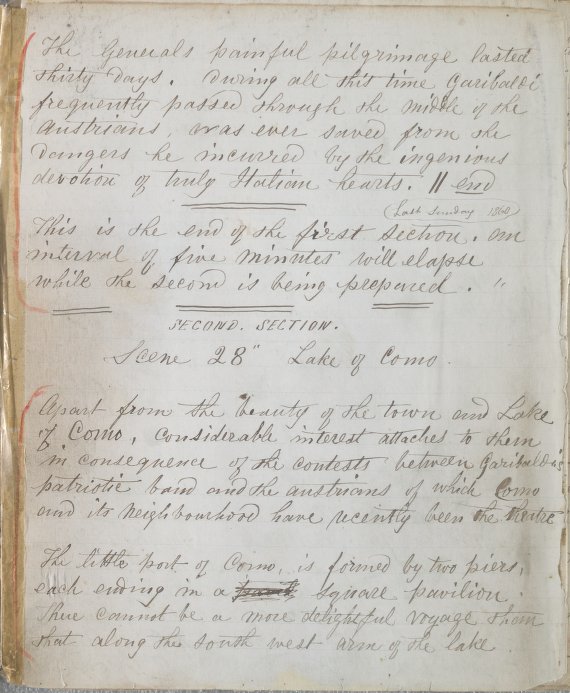 The Generals painful pilgrimage lasted
thirty days. During all this time Garibaldi
frequently passed through the middle of the
Austrians, was ever saved from the
dangers he incurred by the ingenious
devotion of truly Italian hearts. || end
(Last Sunday 1860)
This is the end of the first section. an
interval of five minutes will elapse
while the second is being prepared. "
SECOND. SECTION.
Scene 28" Lake of Como.
Apart from the beauty of the town and Lake
of Como, considerable interest attaches to them
in consequence of the contests between Garibaldi's
patriotic band and the austrians of which Como
and its neighbourhood have recently been the theatre
The little port of Como, is formed by two piers,
each ending in a square pavilion.
There cannot be a more delightful voyage than
that along the south west arm of the lake